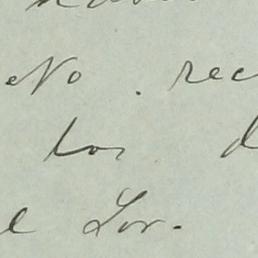 No . rec
los d
l Sor.